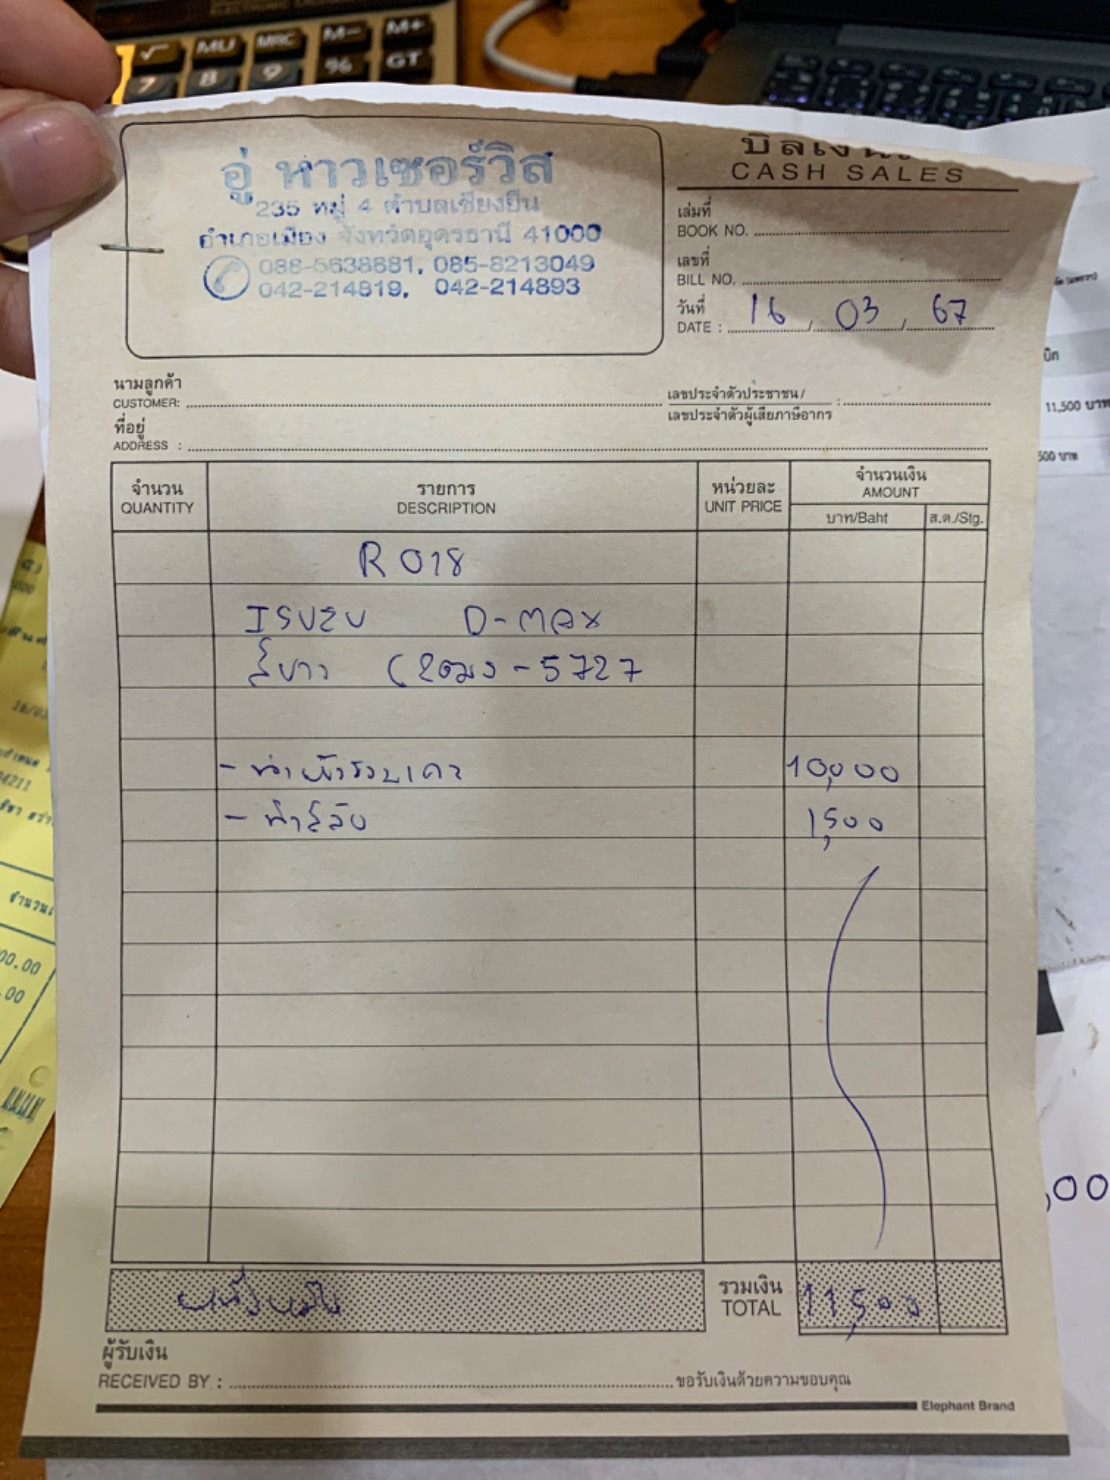 M+
M-
MRC
MU
√
GT
%
9
8
7
อู่ หาวเซอร์วิส
235 หมู่ 4 ตำบลเชียงยืน
อำเภอเมือง จังหวัดอุดรธานี 41000
088-5638881, 085-8213049
042-214819, 042-214893
CASH SALES
เล่มที่
BOOK NO.
เลขที่
BILL NO.
วันที่
DATE : 16 / 03 / 67
นามลูกค้า
CUSTOMER:
เลขประจำตัวประชาชน/
เลขประจำตัวผู้เสียภาษีอากร :
ที่อยู่
ADDRESS :
จำนวน
QUANTITY
รายการ
DESCRIPTION
หน่วยละ
UNIT PRICE
จำนวนเงิน
AMOUNT
บาท/Baht
ส.ต./Stg.
R 018
ISUZU D-MAX
สีขาว -5727
- 10,000
- 1,500
รวมเงิน
TOTAL
11,500
ผู้รับเงิน
RECEIVED BY :
ขอรับเงินด้วยความขอบคุณ
Elephant Brand
11,500 บาท
500 บาท
00.00
.00